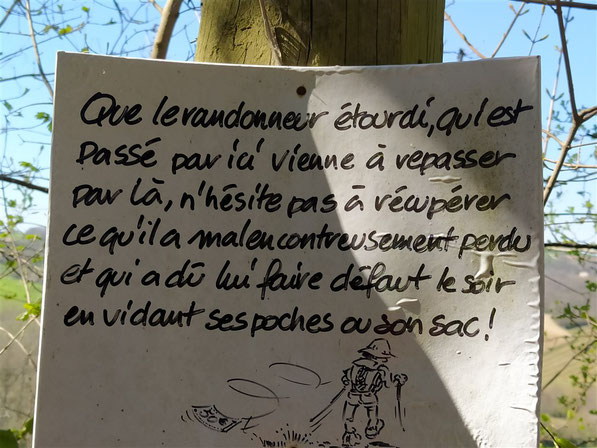 Que le randonneur étourdi, qui est
Passé par ici vienne à repasser
par là, n'hésite pas à récupérer
ce qu'il a malencontreusement perdu
et qui a dû lui faire défaut le soir
en vidant ses poches ou son sac!